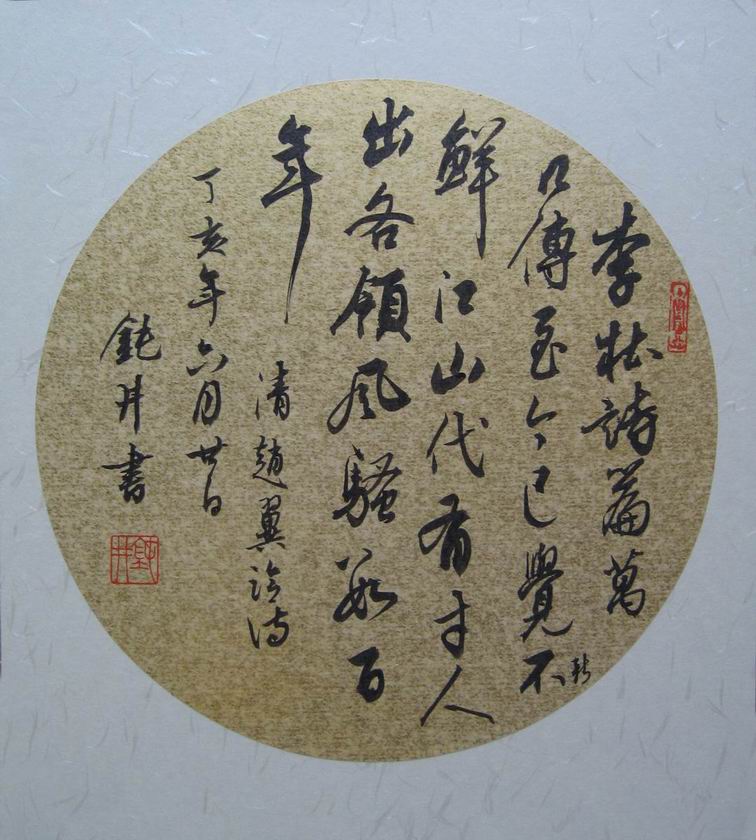 李杜詩篇萬
口傳至今已覺不新
鮮江山代有才人
出各領風騷數百
年
清趙翼論詩
丁亥年六月廿日
鈍井書